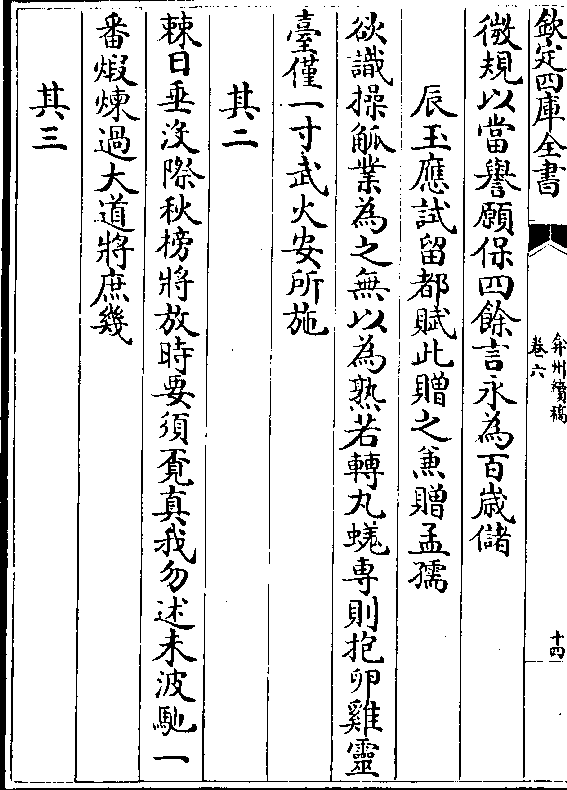 欽定四庫全書
弇州續稿
卷六
十四
微規以當譽願保四餘言永為百歲儲
辰玉應試留都賦此贈之兼贈孟孺
欲識操觚業為之無以為熟若轉丸蜣専則抱卵雞靈
臺僅一寸武火安所施
其二
棘日垂沒際秋榜將放時要須覔真我勿述末波馳一
番煅煉過大道將庶幾
其三